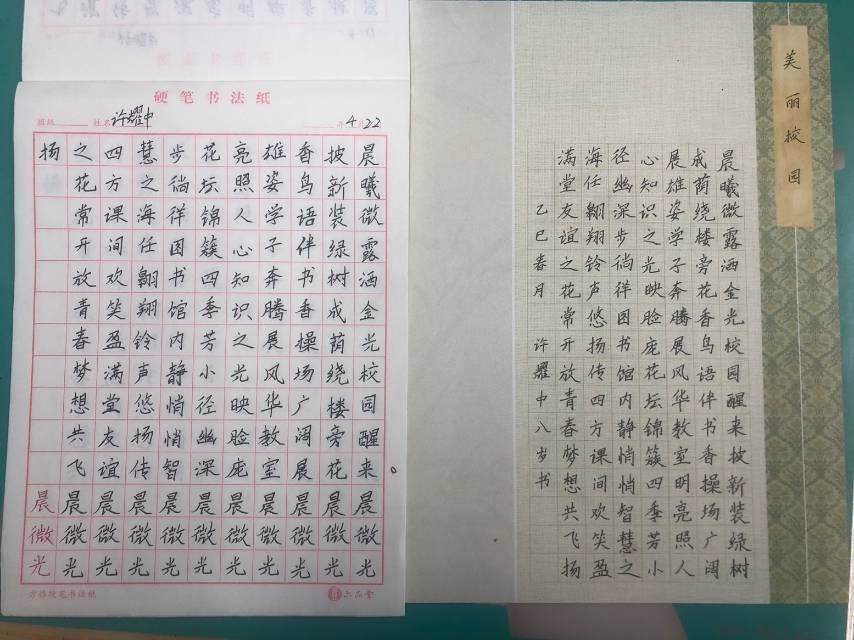 硬笔书法纸
班级 姓名 许耀中 年 4 月 22
晨曦微露洒金光校园醒来晨微光
披新装绿树成荫绕楼旁花晨微光
香鸟语伴书香操场广阔展晨微光
雄姿学子奔腾展风华教室晨微光
亮照人心知识之光映脸庞晨微光
花坛锦簇四季芳小径幽深晨微光
步徜徉图书馆内静悄悄智晨微光
慧之海任翱翔铃声悠扬传晨微光
四方课间欢笑盈满堂友谊晨微光
之花常开放青春梦想共飞晨微光
扬 晨微光
方格硬笔书法纸
六品堂
美丽校园
晨曦微露洒金光校园醒来披新装绿树
成荫绕楼旁花香鸟语伴书香操场广阔
展雄姿学子奔腾展风华教室明亮照人
心知识之光映脸庞花坛锦簇四季芳小
径幽深步徜徉图书馆内静悄悄智慧之
海任翱翔铃声悠扬传四方课间欢笑盈
满堂友谊之花常开放青春梦想共飞扬
乙巳春月 许耀中八岁书